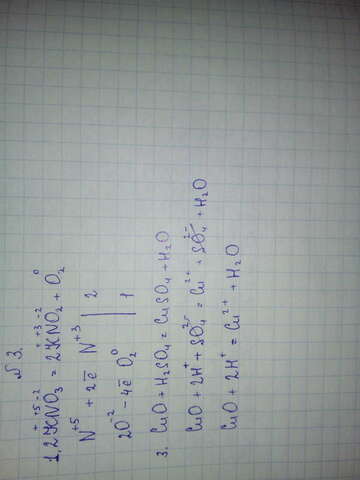 № 3.
+ +5 -2 + +3 -2 0
1. 2KNO₃ = 2KNO₂ + O₂
N⁺⁵ + 2ē N⁺³ | 2
2O⁻² - 4ē O₂⁰ | 1
3. CuO + H₂SO₄ = CuSO₄ + H₂O
CuO + 2H⁺ + SO₄²⁻ = Cu²⁺ + SO₄²⁻ + H₂O
CuO + 2H⁺ = Cu²⁺ + H₂O